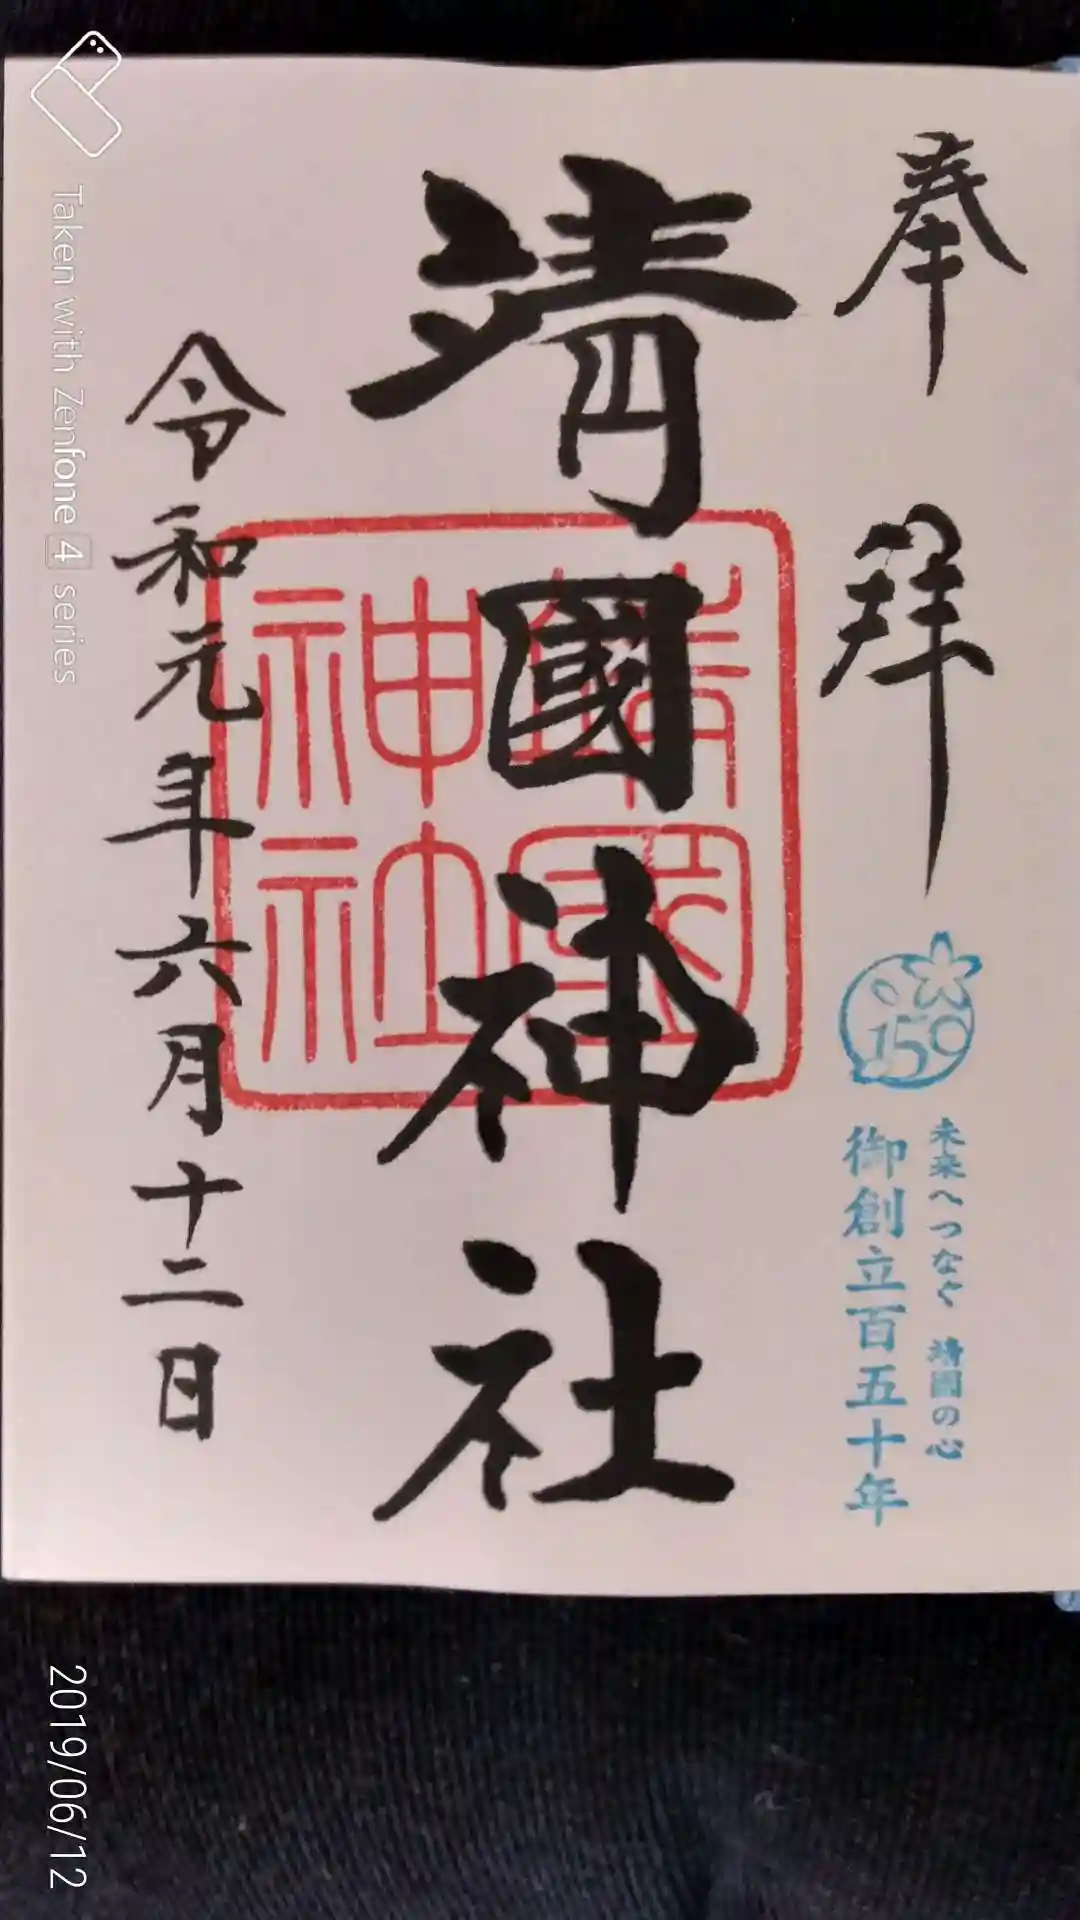 奉拝
150
未来へつなぐ 靖國の心
御創立百五十年
靖國神社
靖國神社
令和元年六月十二日
Taken with Zenfone 4 series
2019/06/12